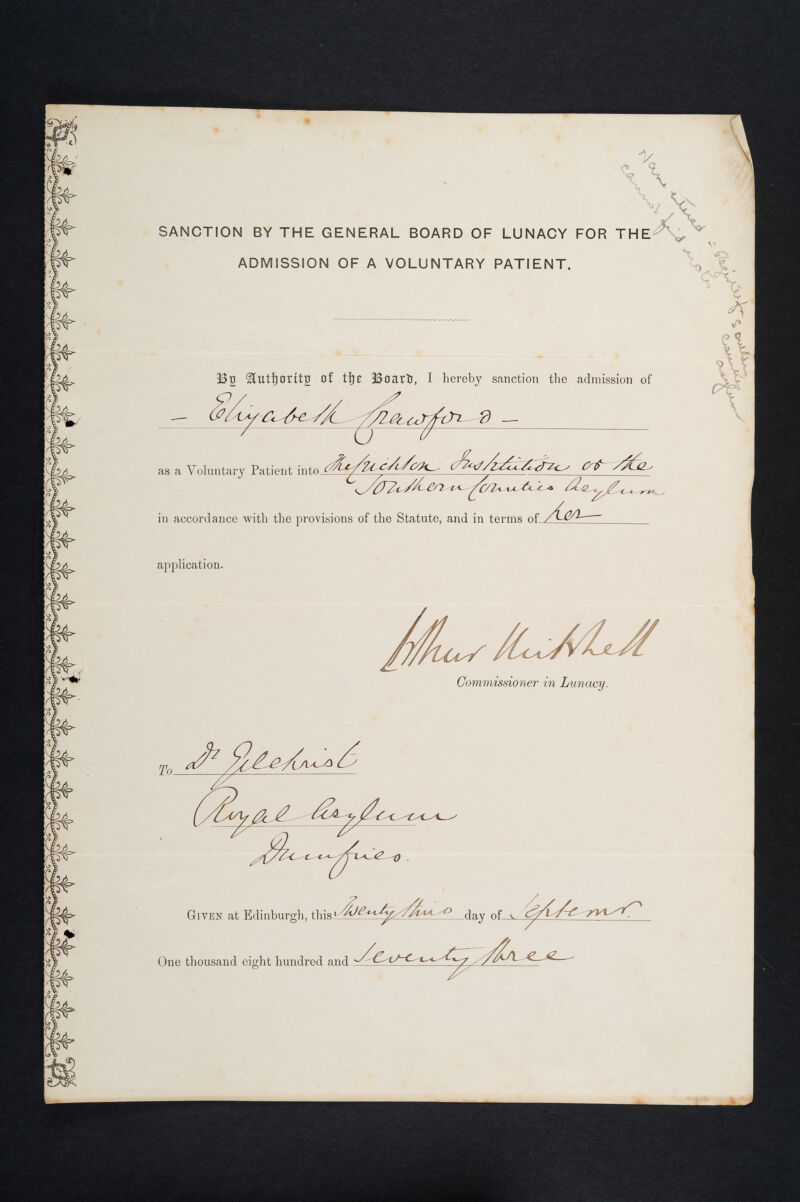 Name entered in Register of Southern Counties Asylum
cannot find notes
SANCTION BY THE GENERAL BOARD OF LUNACY FOR THE
ADMISSION OF A VOLUNTARY PATIENT.
By Authority of the Board, I hereby sanction the admission of
— Elizabeth Crawford —
as a Voluntary Patient into The Crichton Institution or the
Southern Counties Asylum
in accordance with the provisions of the Statute, and in terms of her
application.
Arthur Mitchell
Commissioner in Lunacy.
To Dr Gilchrist
Royal Asylum
Dumfries.
GIVEN at Edinburgh, this Twenty third day of Septemr.
One thousand eight hundred and Seventy three